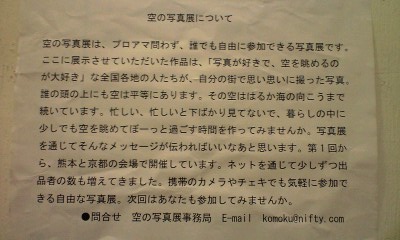 空の写真展について
空の写真展は、プロアマ問わず、誰でも自由に参加できる写真展です。
ここに展示させていただいた作品は、「写真が好きで、空を眺めるの
が大好き」な全国各地の人たちが、自分の街で思い思いに撮った写真。
誰の頭の上にも空は平等にあります。その空ははるか海の向こうまで
続いています。忙しい、忙しいと下ばかり見てないで、暮らしの中に
少しでも空を眺めてぼーっと過ごす時間を作ってみませんか。写真展
を通じてそんなメッセージが伝わればいいなあと思います。第１回か
ら、熊本と京都の会場で開催しています。ネットを通じて少しずつ出
品者の数も増えてきました。携帯のカメラやチェキでも気軽に参加で
きる自由な写真展。次回はあなたも参加してみませんか。
●問合せ　空の写真展事務局　E-mail　komoku@nifty.com